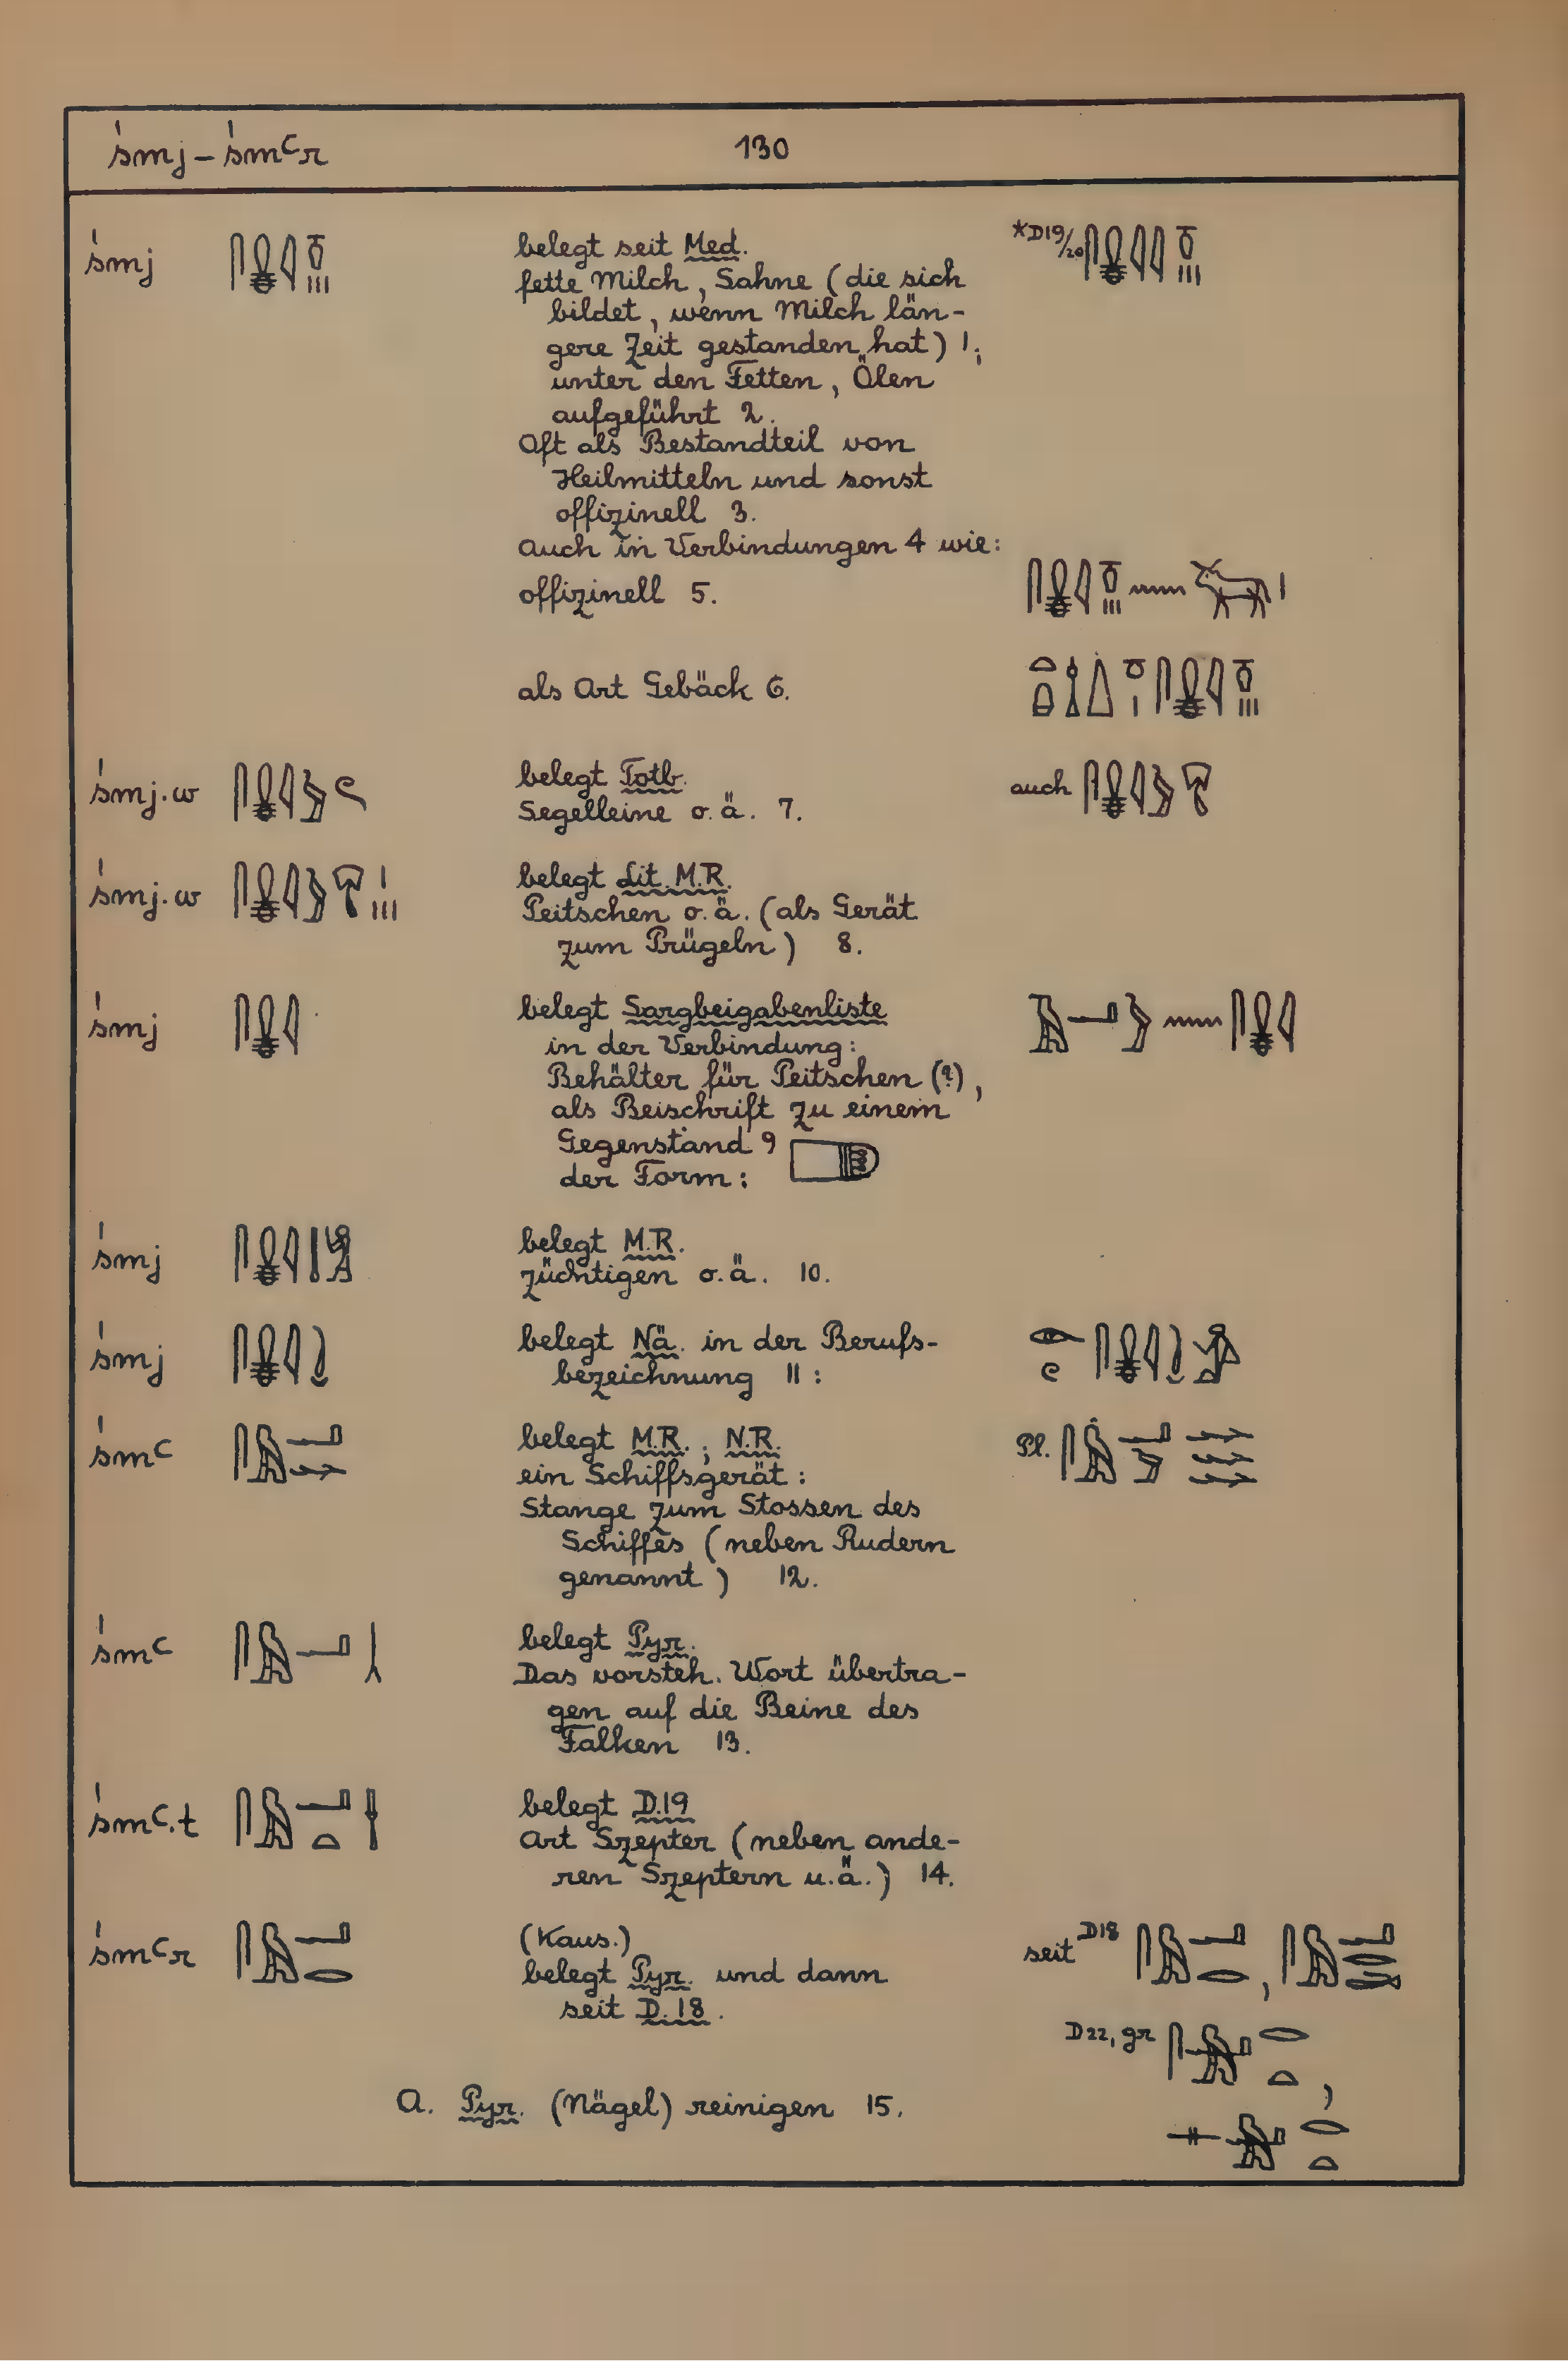 śmj – śmꜥr 130
śmj belegt seit Med. *D19/20
fette Milch, Sahne (die sich
bildet, wenn Milch län-
gere Zeit gestanden hat) 1;
unter den Fetten, Ölen
aufgeführt 2.
Oft als Bestandteil von
Heilmitteln und sonst
offizinell 3.
Auch in Verbindungen 4 wie:
offizinell 5.
als Art Gebäck 6.
śmj.w belegt Totb. auch
Segelleine o.ä. 7.
śmj.w belegt Lit. M.R.
Peitschen o.ä. (als Gerät
zum Prügeln) 8.
śmj belegt Sargbeigabenliste
in der Verbindung:
Behälter für Peitschen (?),
als Beischrift zu einem
Gegenstand 9
der Form:
śmj belegt M.R.
züchtigen o.ä. 10.
śmj belegt Nä. in der Berufs-
bezeichnung 11:
śmꜥ belegt M.R.; N.R. Pl.
ein Schiffsgerät:
Stange zum Stossen des
Schiffes (neben Rudern
genannt) 12.
śmꜥ belegt Pyr.
Das vorsteh. Wort übertra-
gen auf die Beine des
Falken 13.
śmꜥ.t belegt D.19
Art Szepter (neben ande-
ren Szeptern u.ä.) 14.
śmꜥr (Kaus.) seit D18
belegt Pyr. und dann
seit D.18.
D22, gr
A. Pyr. (Nägel) reinigen 15.